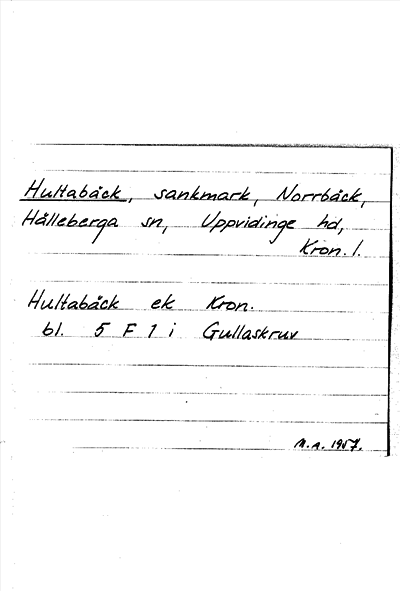 Hultabäck, sankmark, Norrbäck,
Hälleberga sn, Uppvidinge hd,
Kron. l.
Hultabäck ek Kron.
bl. 5 F 1 i Gullaskruv
M.A. 1957.